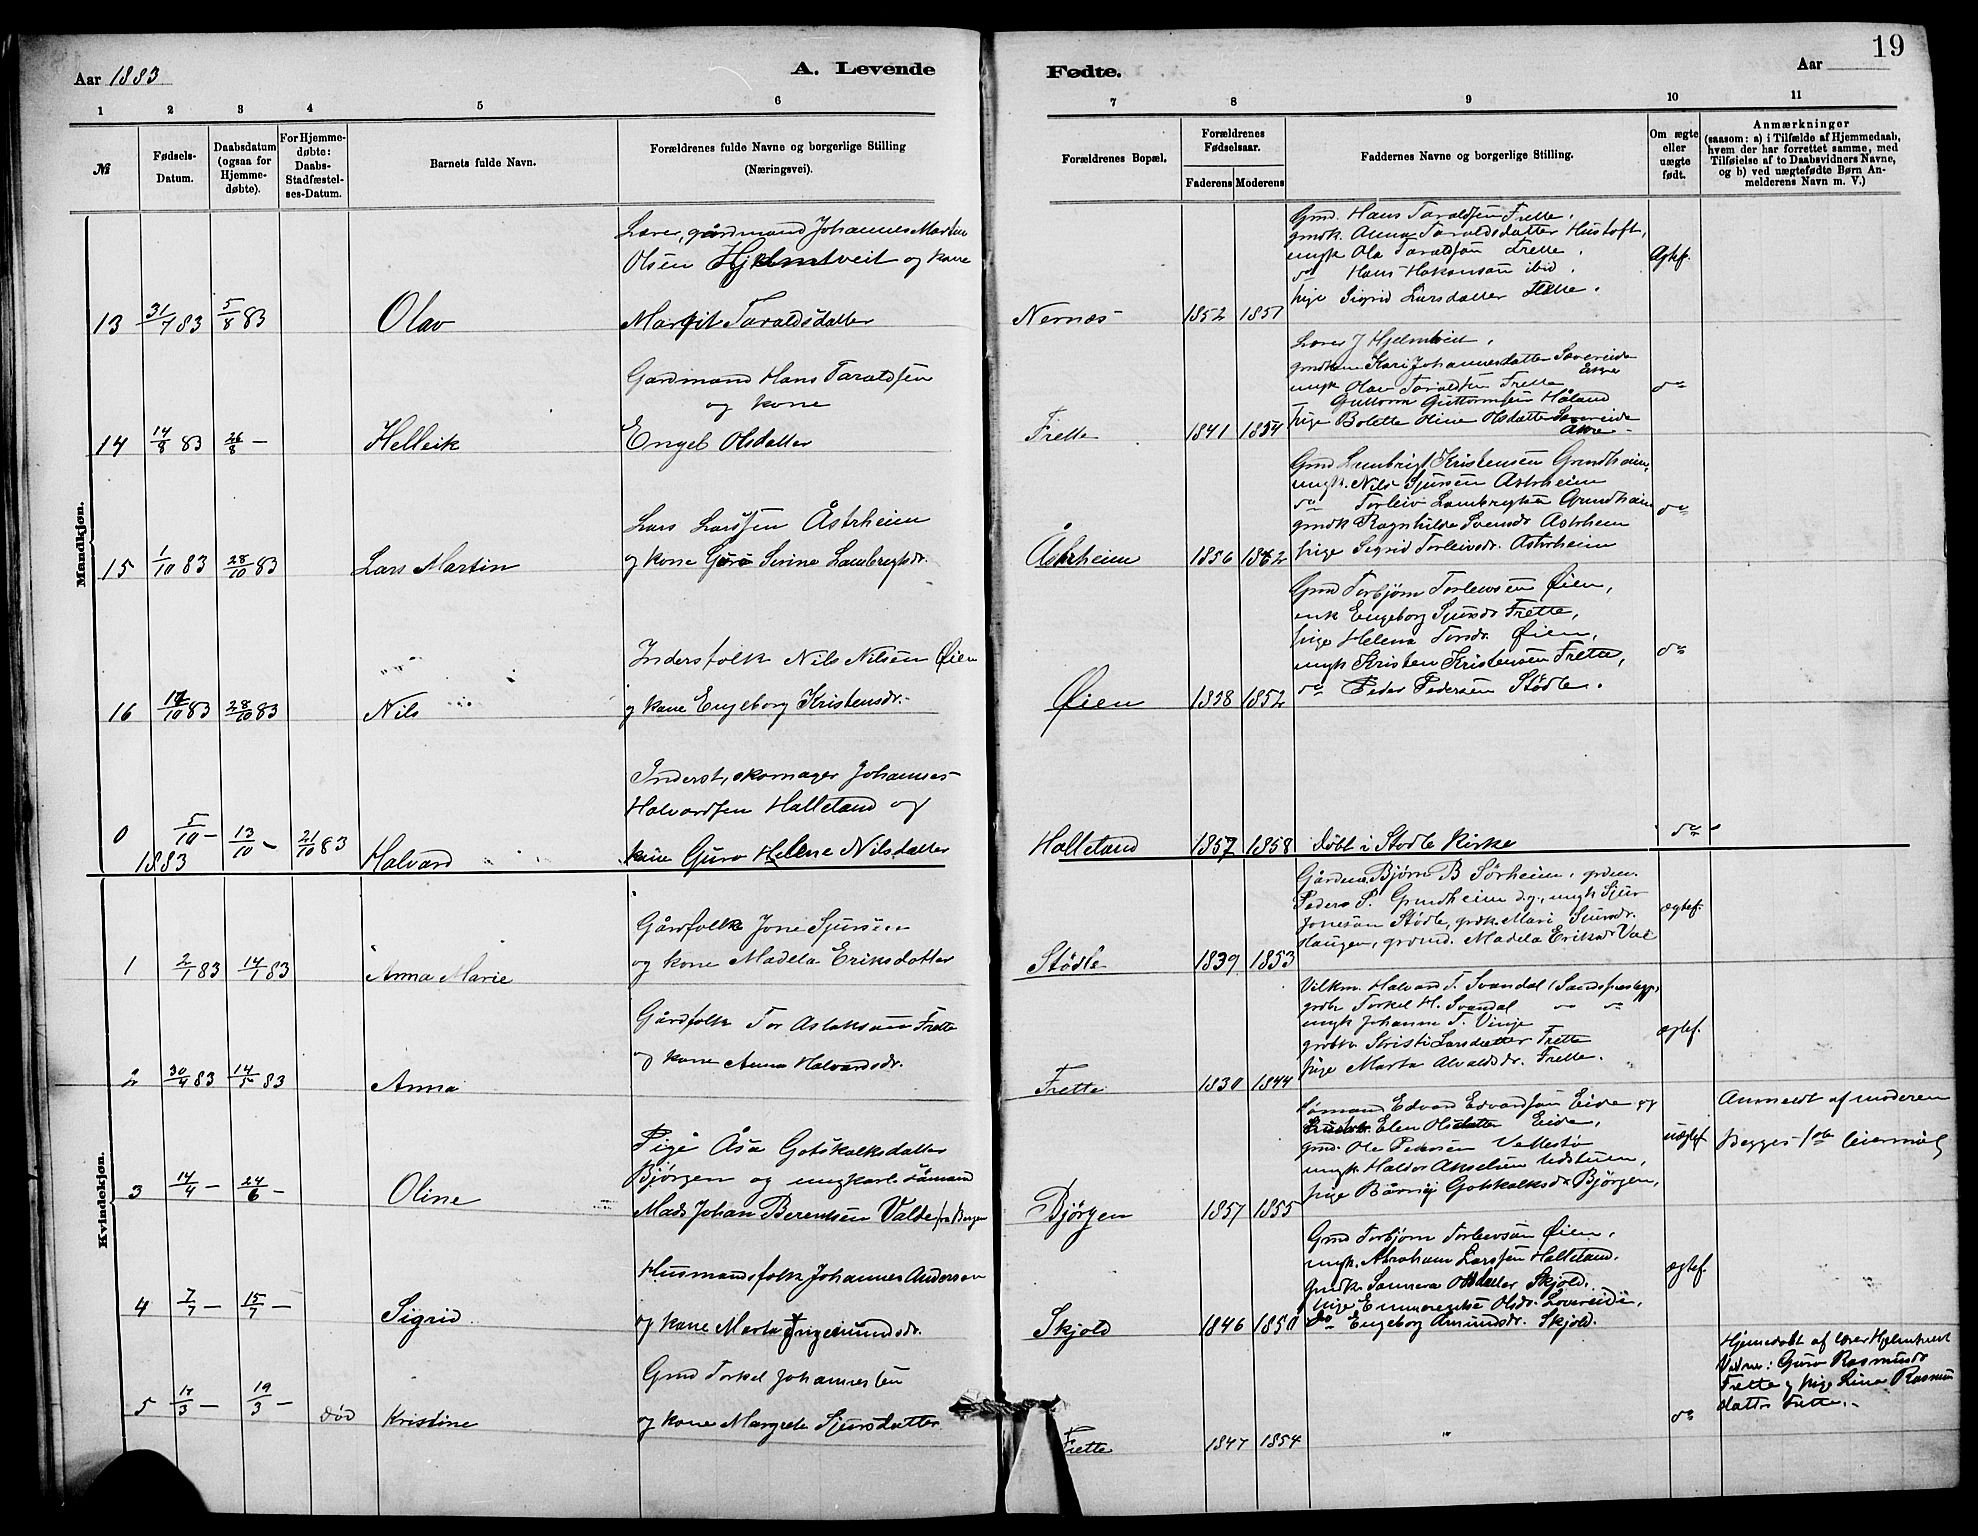 19
Aar 1883
A. Levende
Fødte.
Aar
1 2 3 4 5 6 7 8 9 10 11
№
Fødsels-Datum.
Daabsdatum (ogsaa for Hjemmedøbte).
For Hjemmedøbte: Daabs-Stadfæstelses-Datum.
Barnets fulde Navn.
Forældrenes fulde Navne og borgerlige Stilling
(Næringsvei).
Forældrenes Bopæl.
Forældrenes Fødselsaar.
Faderens Moderens
Faddernes Navne og borgerlige Stilling.
Om ægte eller uægte født.
Anmærkninger
(saasom: a) i Tilfælde af Hjemmedaab,
hvem der har forrettet samme, med
Tilføielse af to Daabsvidners Navne,
og b) ved uægtefødte Børn An-
melderens Navn m. V.)
Mandkjøn.
Lærer, gårdmand Johannes Martin
Olsen Hjelmtveit og kone
13 31/7 83 5/8 83 Olav Margit Taraldsdatter
Nernæs 1852 1851
Gmd. Hans Taraldsen Frette,
gmdk. Anna Taraldsdatter Hustoft,
ungk Ola Taraldsøn Frette,
do Hans Hakonsøn ibid.
pige Sigrid Larsdatter Frette.
Ægtef.
Gardmand Hans Taraldsen
og kone
14 14/8 83 26/8 – Helleik Engel Olsdatter
Frette 1841 1854
Lærer J Hjelmtveit,
Kari Johannesdatter Søvereide
Etne
ungk Olav Taraldsen Frette
Guttorm Guttormsen Håland
pige Bolette Oline Olsdatter Søvereide
do
Lars Larssen Åstrheim
15 1/10 83 28/10 83 Lars Martin og kone Guro Serine Lambregtsdr.
Åstrheim 1856 1862
Gmd Lambrigt Kristensen Grindheim,
ungk. Nils Sjursen Åstrheim
do Torleiv Lambregtsen Grindheim
gmdk Ragnhilda Svensdr Åstrheim
pige Sigrid Torleivsdr. Åstrheim
do
Inderstfolk Nils Nilsen Øien
16 14/10 83 28/10 83 Nils og kone Engeborg Kristensdr.
Øien 1838 1852
Gmd Torbjørn Torlevsen Øien,
enk Engeborg Sjursdr Frette,
pige Helena Torsdr. Øien,
ungk Kristen Kristensen Frette,
do Peder Pedersen Stødle.
do
Inderst, skomager Johannes
Halvardsen Halleland og
0 5/10 – 13/10 – 21/10 83 Halvard kone Guro Helene Nilsdatter
Halleland 1857 1858 døbt i Stødle Kirke do
1883
Kvindekjøn.
Gårdfolk Jone Sjursen
1 2/1 83 14/1 83 Anna Marie og kone Madela Eriksdatter
Stødle 1839 1853
Gårdm. Bjørn B Sørheim, grdm.
Peder P. Grindheim d.y., ungk Sjur
Jonesøn Stødle, grdk Mari Sjursdr.
Haugen, Madela Eriksdr Val
ægtef.
Gårdfolk Tor Aslaksøn Frette
2 30/4 83 14/5 83 Anna og kone Anna Halvardsdr.
Frette 1830 1844
Halvard T. Svandal
Torkel H. Svandal do
ungk Johanne T. Vinje
Kristi Larsdatter Frette
pige Marta Alvaldsdr. Frette.
ægtef.
Pige Åsa Gotskalksdatter
Bjørgen og ungkarl sømand
3 14/4 – 24/6 – Oline Mads Johan Berentsen Valde fra Bergen
Bjørgen 1857 1855
Sømand Edvard Edvardsøn Eide og
Elen Olsdatter Eide,
gmd. Ole Pedersen Vallestø
ungk. Haldor Akselsen Udstuen,
pige Gotskalksdr Bjørgen,
uægtef
Anmeldt af moderen
Begges 1ste leiermål
Husmandsfolk Johannes Andersen
4 7/7 – 15/7 – Sigrid og kone Marta Ingemundsdr.
Skjold 1846 1850
Gmd Torbjørn Torlevsøn Øien,
ungk. Abraham Larssen Halleland.
gmdk. Sunneva Olsdatter Skjold.
pige Emmerentse Olsdr. Søvereide,
do Engeborg Amundsdr. Skjold.
ægtef.
Gmd Torkel Johannesen
5 17/3 – 19/3 – død Kristine og kone Margrete Sjursdatter
Frette 1847 1854 " do
Hjemedøbt af lærer Hjelmtveit
Vidner: Guro Rasmusdr
Frette og pige Lina Rasmus
datter Frette.